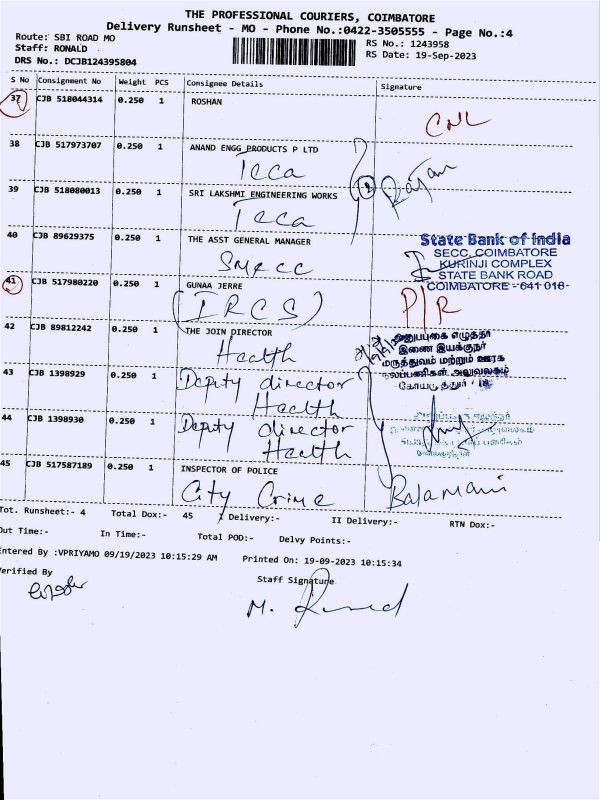 THE PROFESSIONAL COURIERS, COIMBATORE
Delivery Runsheet - MO - Phone No.:0422-3505555 - Page No.:4
Route: SBI ROAD MO
Staff: RONALD
DRS No.: DCJB124395804
RS No.: 1243958
RS Date: 19-Sep-2023
S No Consignment No Weight PCS Consignee Details Signature
37 CJB 518044314 0.250 1 ROSHAN
CNL
38 CJB 517973707 0.250 1 ANAND ENGG PRODUCTS P LTD
Icca
2 Rajan
39 CJB 518080013 0.250 1 SRI LAKSHMI ENGINEERING WORKS
Icca
40 CJB 89629375 0.250 1 THE ASST GENERAL MANAGER
SMECC
State Bank of India
SECC, COIMBATORE
KURINJI COMPLEX
STATE BANK ROAD
COIMBATORE - 641 018
41 CJB 517980220 0.250 1 GUNAA JERRE
(IRCS)
P/R
42 CJB 89812242 0.250 1 THE JOIN DIRECTOR
Health
அனுப்புகை எழுத்தர்
இணை இயக்குநர்
மருத்துவம் மற்றும் ஊரக
நலப்பணிகள் அலுவலகம்
கோயமுத்தூர் - 18
43 CJB 1398929 0.250 1 Deputy director
Health
44 CJB 1398930 0.250 1 Deputy director
Health
45 CJB 517587189 0.250 1 INSPECTOR OF POLICE
City Crime
Balamani
Tot. Runsheet:- 4 Total Dox:- 45 I Delivery:- II Delivery:- RTN Dox:-
Out Time:- In Time:- Total POD:- Delvy Points:-
Entered By :VPRIYAMO 09/19/2023 10:15:29 AM Printed On: 19-09-2023 10:15:34
Verified By
Staff Signature